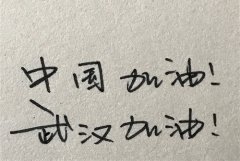 中国加油!
武汉加油!